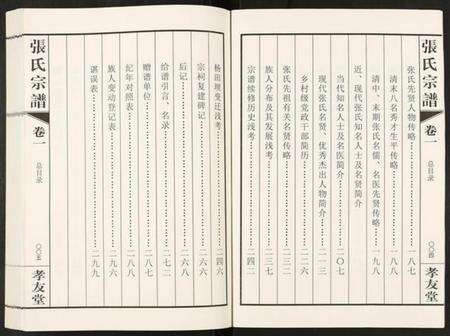 張氏宗譜
卷一
总目录
〇〇四
孝友堂
张氏先贤人物传略……一八七
清末八名秀才生平传略……一八八
清中、末期张氏名儒、名医先贤传略……一九八
近、现代张氏知名人士及名贤简介
当代知名人士及名医简介……二〇七
现代张氏名贤、优秀杰出人物简介……二一三
乡村级党政干部简历……二三一
张氏先祖有关名贤传略……二三五
族人分布及其发展浅考……二三七
宗谱续修历史浅考……二四二
杨田坝变迁浅考……二四六
宗祠复建碑记……二六六
后记……二六八
给谱引言、名录……二七二
赠谱单位……二八七
纪年对照表……二八八
族人变动登记表……二九六
谌误表……二九九
張氏宗譜
卷一
总目录
〇〇五
孝友堂